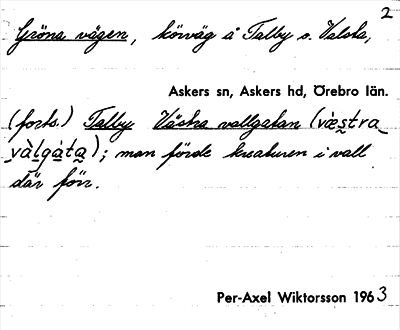 2
Gröna vägen, körväg å Talby o. Valsta,
Askers sn, Askers hd, Örebro län.
(forts.) Talby Västra vallgatan (væstra
vàlgàta); man förde kreaturen i vall
där förr.
Per-Axel Wiktorsson 1963